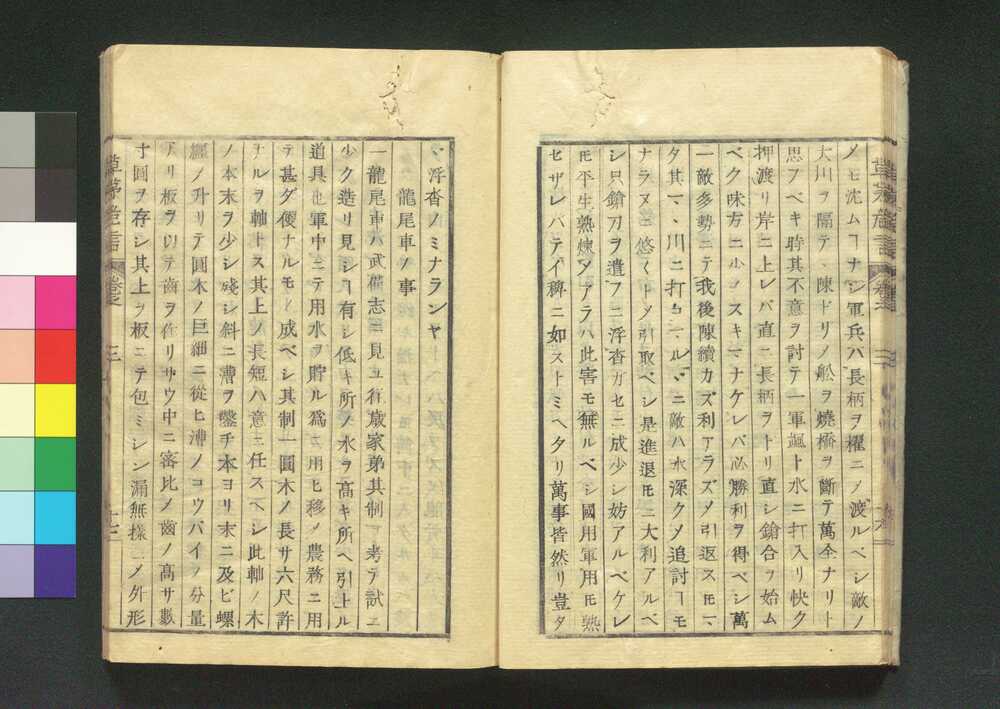 メモ沈ムコナシ軍兵ハ長柄ヲ櫂ニメ渡ルベシ敵ノ
大川ヲ隔テ、陳ドリノ舩ヲ燒橋ヲ斷テ萬全ナリト
思フベキ時其不意ヲ討テ一軍颯ト水ニ打入リ快ク
押渡リ岸ニ上レバ直ニ長柄ヲトリ直シ鎗合ヲ始ム
ベク味方ニ少メスキマナケレバ必勝利ヲ得ベシ萬
一敵多勢ニテ我後陳續カズ利アラズメ引返スモ一、
タ其一、川ニ打ルヽニ敵ハ水深クメ追討コモ
ナラヌニ悠〱トメ引取ベシ是進退モニ大利アルベ
シ只鎗刀ヲ遣フニ浮沓ガセニ成少シ妨アルベケレ
モ平生熟煉メアラハ此害モ無ルベシ國用軍用モ熟
セザレバテイ稗ニ如ストミヘタリ萬事皆然リ豈タ
草茅危言
三
ヽ浮沓ノミナランヤ
龍尾車ノ事
一龍尾車ハ武備志ニ見ユ徃歳家弟其制ヲ考テ試ニ
少ク造リ見シコ有シ低キ所ノ水ヲ高キ所ヘ引上ル
道具也軍中ニテ用水ヲ貯ル爲ニ用ヒ移メ農務ニ用
テ甚ダ便ナルモノ成ベシ其制一圓木ノ長サ六尺許
ナルヲ軸トス其上ノ長短ハ意ニ任スベシ此軸ノ木
ノ本末ヲ少シ殘シ斜ニ漕ヲ鑿チ本ヨリ末ニ及ビ螺
ノ升リテ圓木ノ巨細ニ從ヒ溥ノコウバイノ分量
アリ板ヲ以テ齒ヲ作リサウ中ニ密比メ齒ノ高サ數
寸圓ヲ存シ其上ヲ板ニテ包ミシン漏無樣ニメ外形
草茅危言
卷之
三